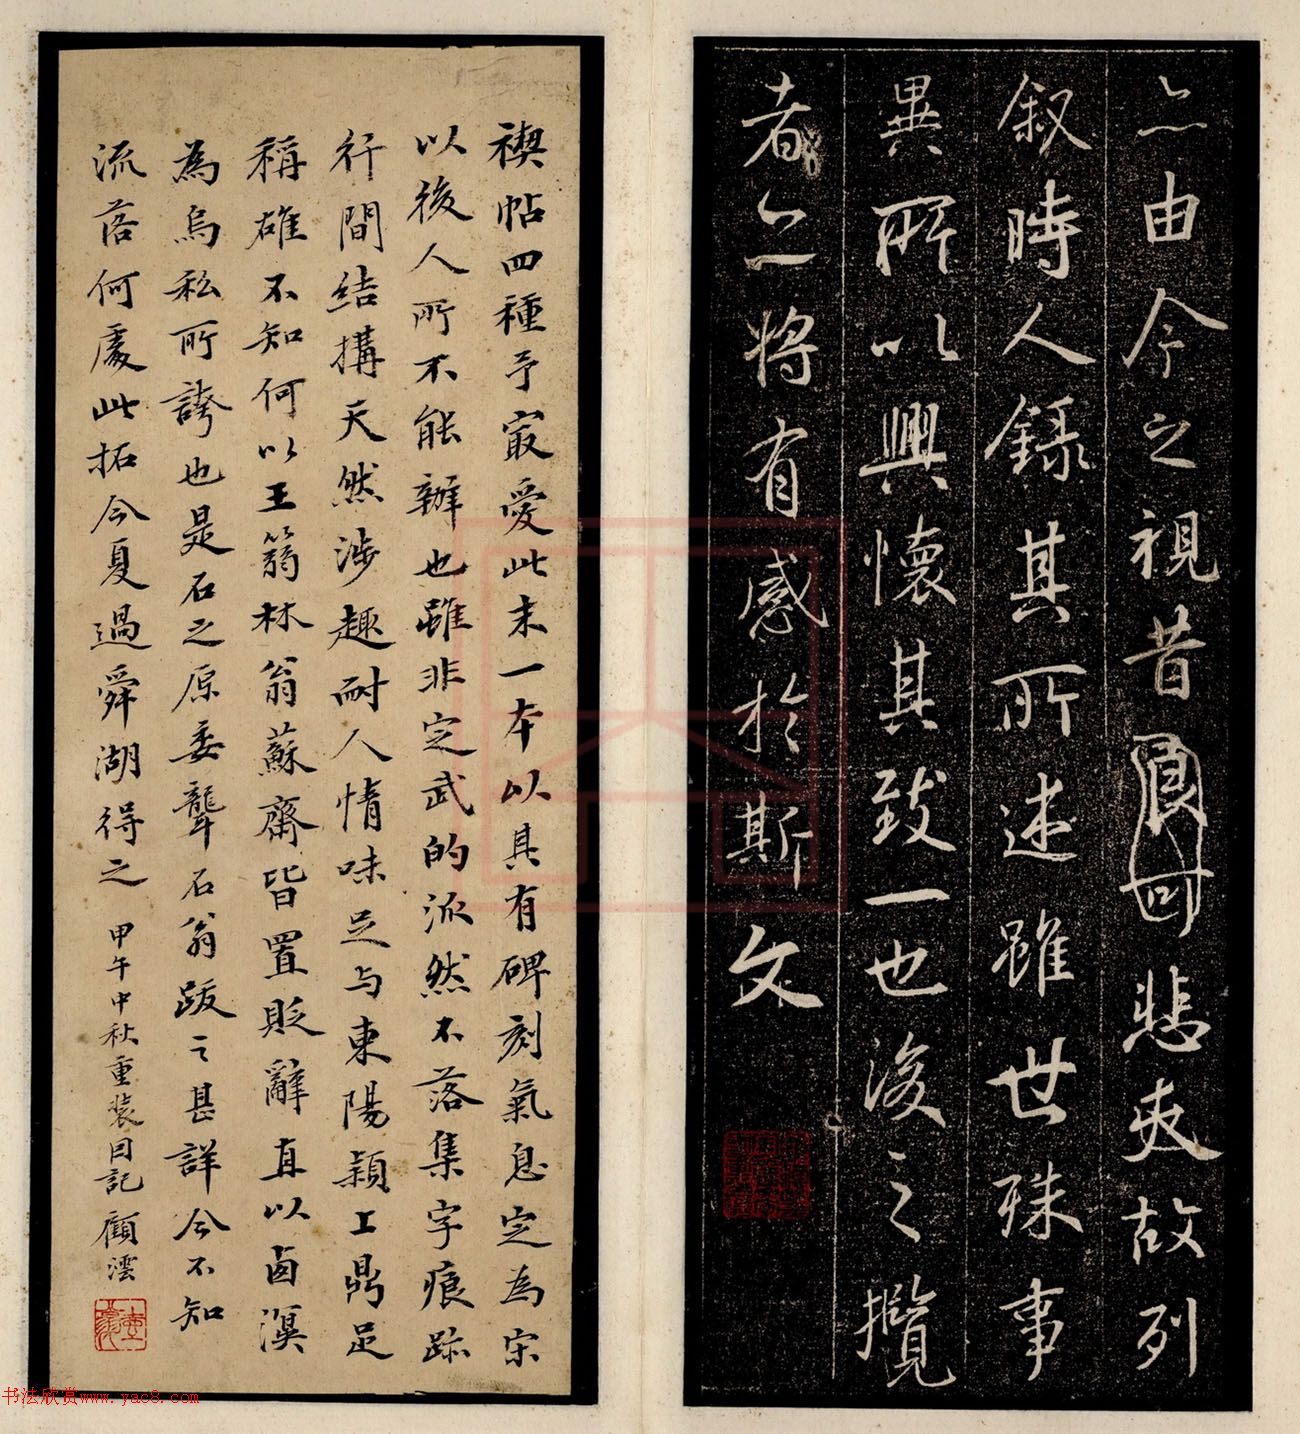 亦由今之視昔良可悲夫故列
叙時人錄其所述雖世殊事
異所以興懷其致一也後之攬
者亦將有感於斯文
禊帖四種予冣愛此末一本以具有碑刻氣息定為宋
以後人所不能辦也雖非定武的派然不落集字痕跡
行間結搆天然涉趣耐人情味足与東陽潁上鼎足
稱雄不知何以王蒻林翁蘇齋皆置貶辭直以鹵漠
為烏私所誇也是石之原委龔石翁跋之甚詳今不知
流落何處此拓今夏過舜湖得之 甲午中秋重裝因記 顧澐
书法欣赏www.yac8.com